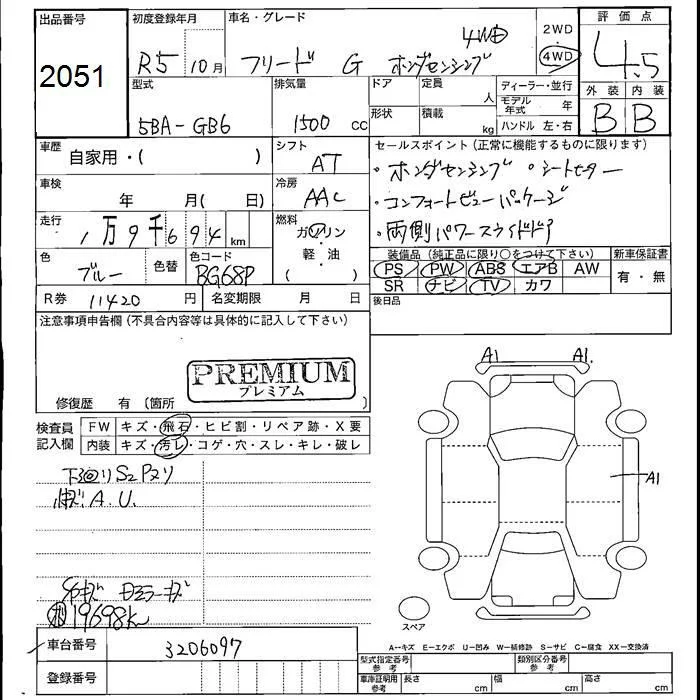 出品番号
2051
初度登録年月
R5 10月
車名・グレード
フリード G ホンダセンシング 4WD
2WD
4WD
評価点
4.5
外装 内装
B B
型式
5BA-GB6
排気量
1500 cc
ドア
形状
定員
人
積載
kg
ディーラー・並行
モデル年式 年
ハンドル 左・右
車歴
自家用・( )
シフト
AT
セールスポイント(正常に機能するものに限ります)
・ホンダセンシング ・シートヒーター
・コンフォートビューパッケージ
・両側パワースライドドア
車検
年 月( 日)
冷房
AAC
走行
1万9千694 km
燃料
ガソリン
軽・油
( )
色
ブルー
色替
色コード
BG68P
装備品(純正品に限り○をつけて下さい)
PS PW ABS エアB AW
SR ナビ TV カワ
新車保証書
有・無
R券 11420 円
名変期限 月 日
後日品
注意事項申告欄(不具合内容等は具体的に記入して下さい)
PREMIUM
プレミアム
修復歴 有(箇所 )
検査員記入欄
FW キズ・飛石・ヒビ割・リペア跡・X要
内装 キズ・汚レ・コゲ・穴・スレ・キレ・破レ
下廻りS2 Pヌリ
A.U.
19698k
A1 A1.
A1
スペア
車台番号
3206097
登録番号
A--キズ E--エクボ U--凹み W--補修跡 S--サビ C--腐食 XX--交換済
型式指定番号
参考
類別区分番号
参考
車庫証明用
参考
長さ cm
幅 cm
高さ cm